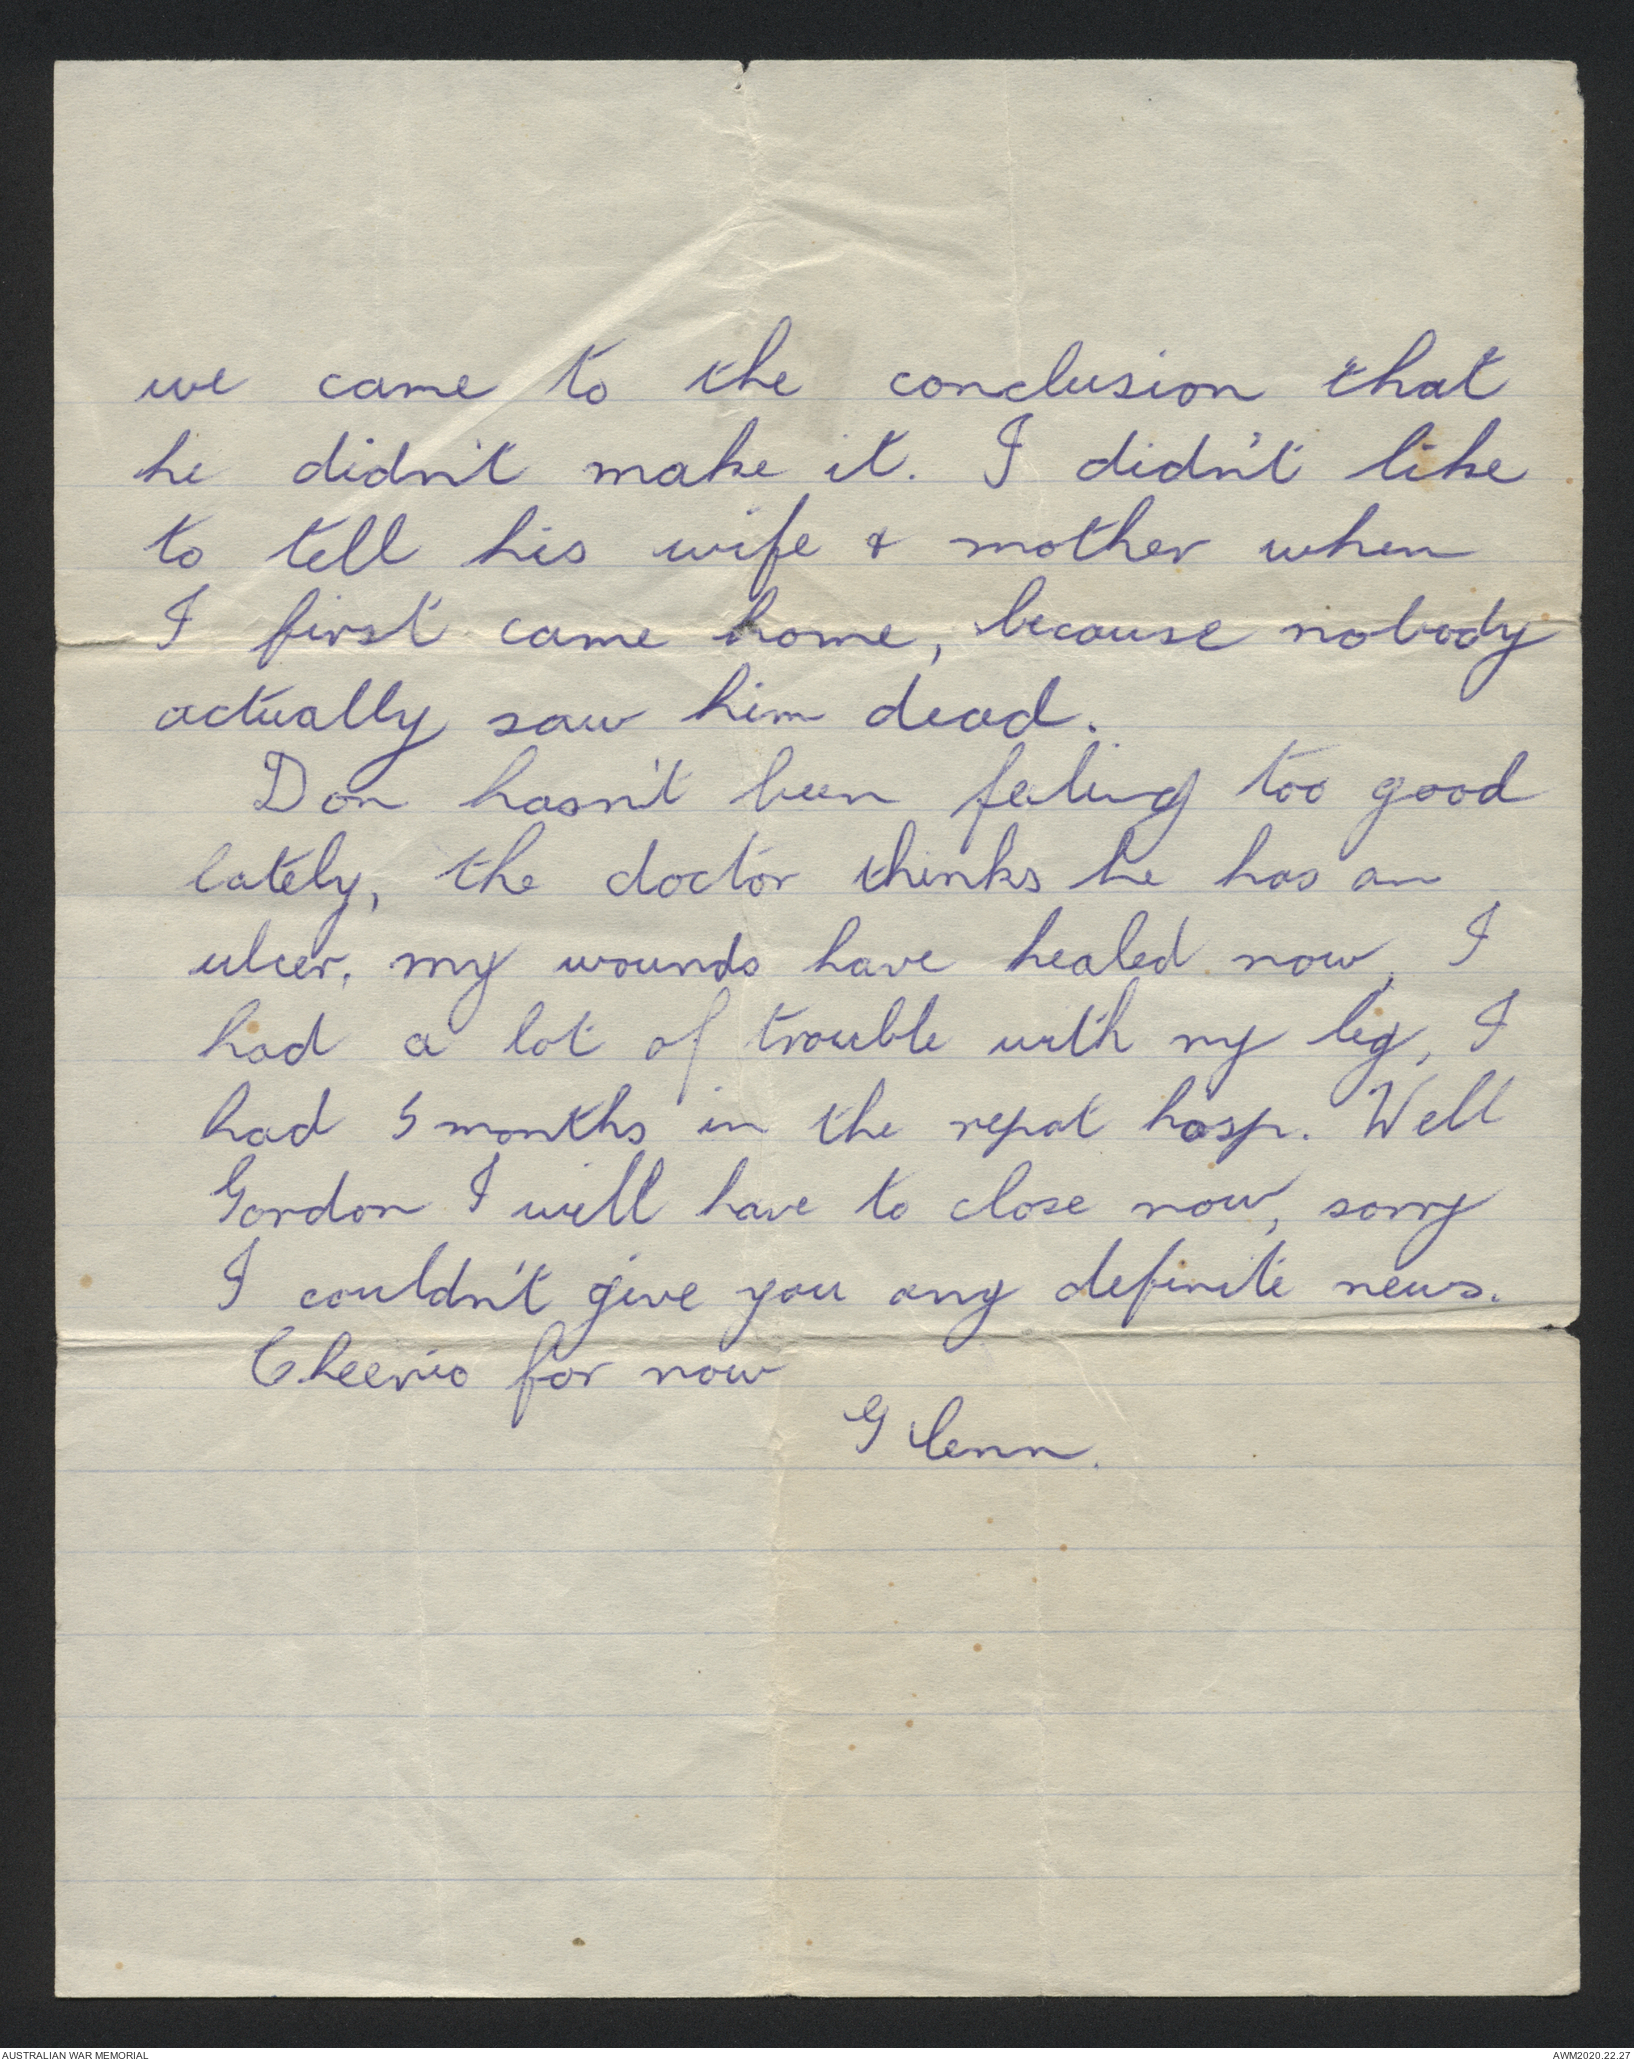 we came to the conclusion that
he didn't make it. I didn't like
to tell his wife & mother when
I first came home, because nobody
actually saw him dead.
Don hasn't been feeling too good
lately, the doctor thinks he has an
ulcer, my wounds have healed now, I
had a lot of trouble with my leg, I
had 5 months in the repat hosp. Well
Gordon I will have to close now, sorry
I couldn't give you any definite news.
Cheerio for now
Glenn.
AUSTRALIAN WAR MEMORIAL
AWM2020.22.27